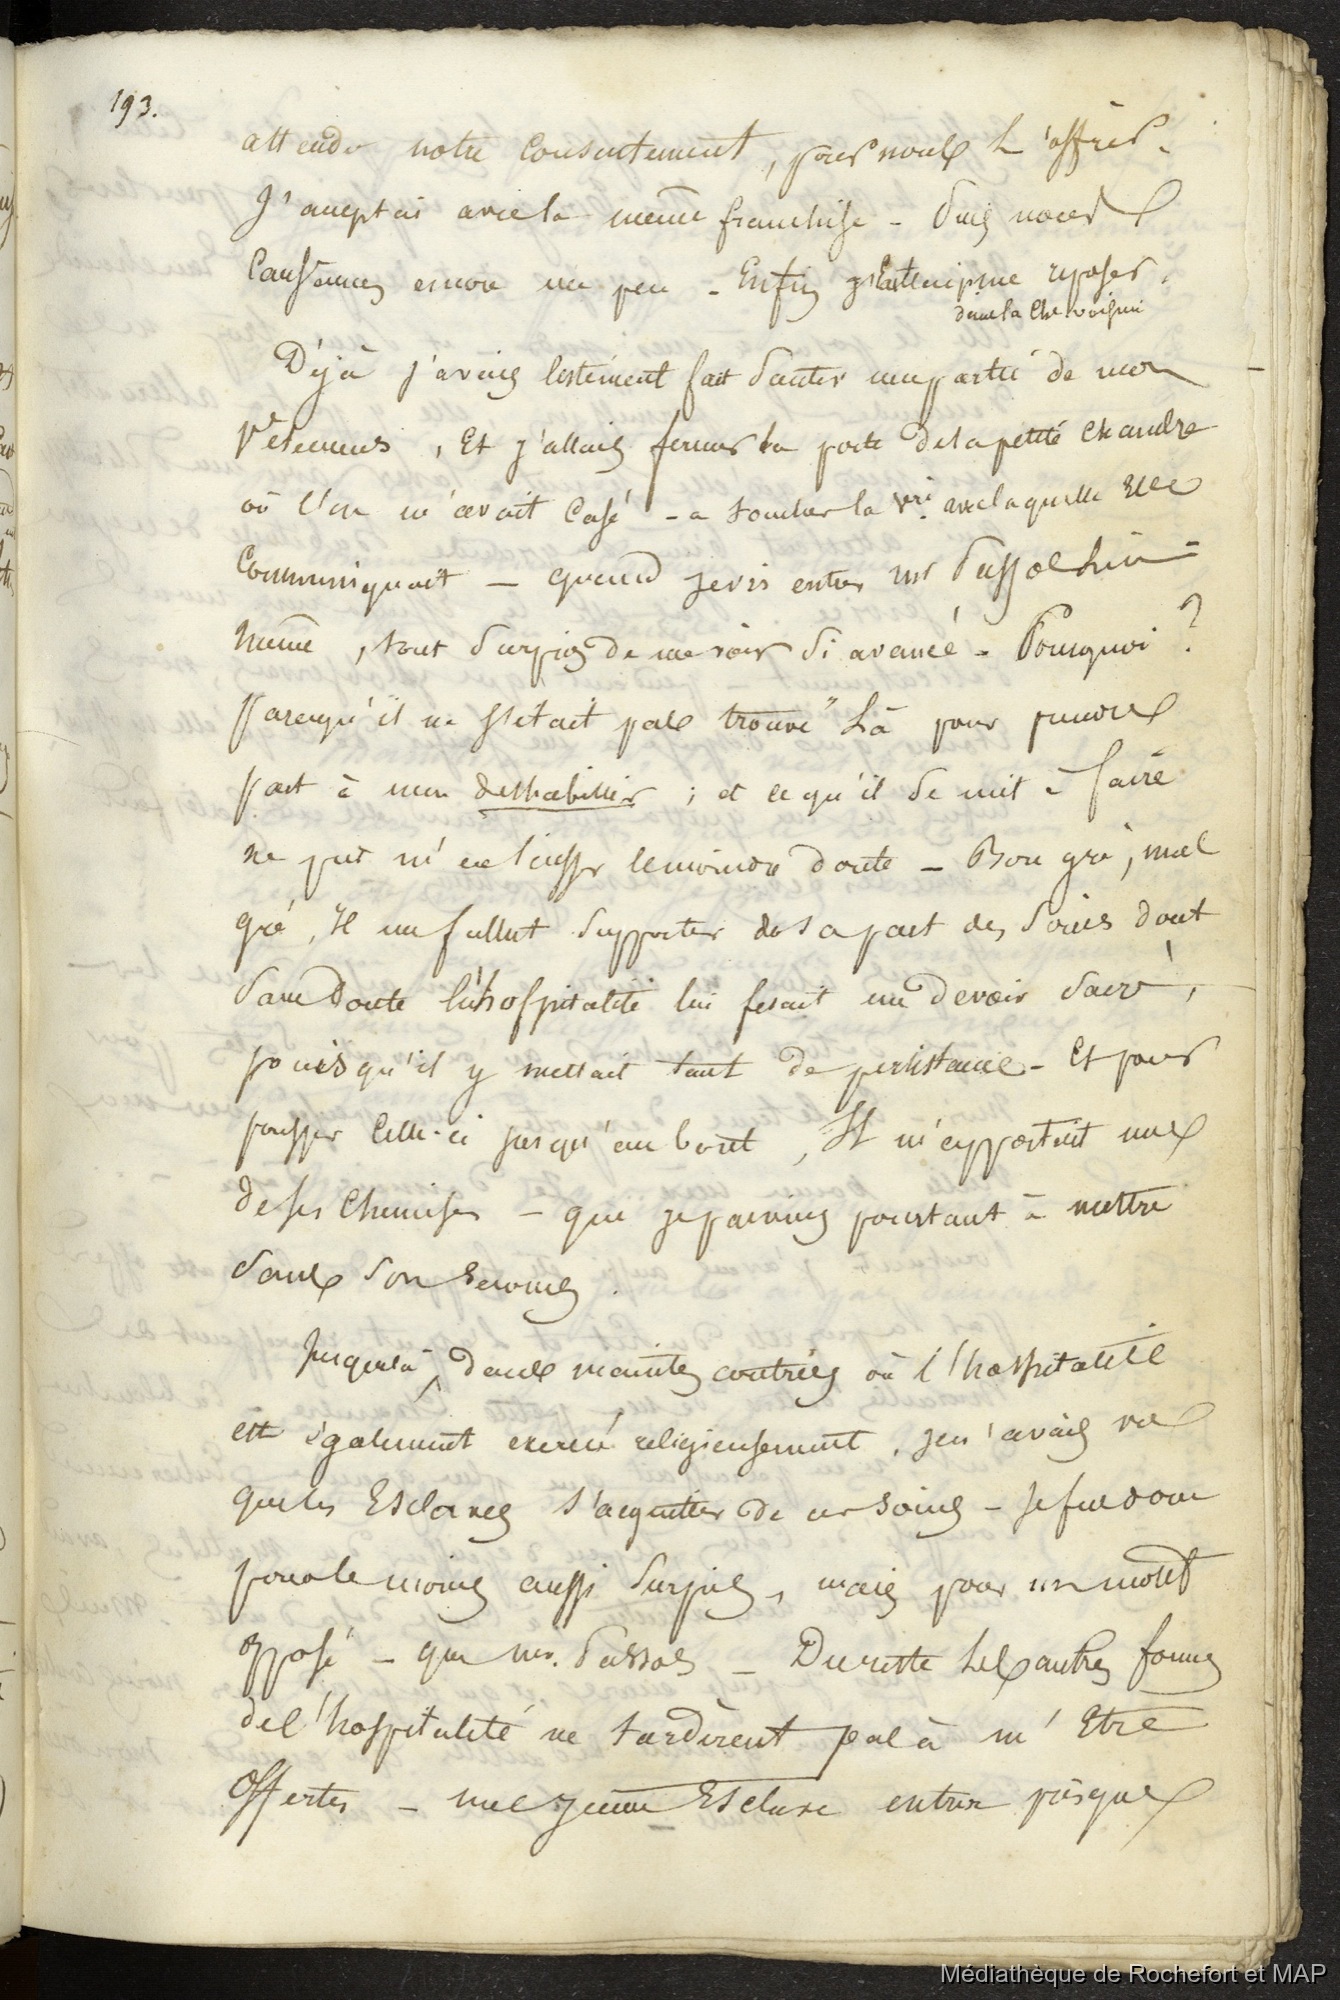 193.
attendu notre consentement, pour nous l'offrir.
J'acceptai avec la même franchise - Puis nous
causâmes encore un peu - Enfin me reposer.
dans la Che voisine
Déjà j'avais lestement fait sauter une partie de mes
vêtemens, Et j'allais fermer la porte de la petite chandre
où l'on m'avait casé - a toucher la avec laquelle Elle
communiquait - quand je vis entrer mr Passos lui-
même, tout surpris de me voir si avancé - Pourquoi ?
Parcequ'il ne s'etait pas trouvé là pour prendre
part à mon deshabiller ; et ce qu'il se mit à faire
ne put m'en laisser le moindre doute - Bon gré, mal
gré, Il me fallut supporter de sa part des soins dont
sans doute l'hospitalité lui fesait un devoir sacré,
puisqu'il y mettait tant de persistance - Et pour
pousser celle-ci jusqu'au bout, Il m'apportait une
de ses chemises - que je parvins pourtant à mettre
sans son secours.
Jusques là, dans maintes contrées où l'hospitalité
est également exercée religieusement, je n'avais vu
que les Esclaves s'acquitter de ces soins - Je fus donc
pour le moins aussi surpris, mais pour un motif
opposé - que mr. Passos - Du reste les autres formes
de l'hospitalité ne tardèrent pas à m'être
offertes - une jeune Esclave entra presque
Médiathèque de Rochefort et MAP